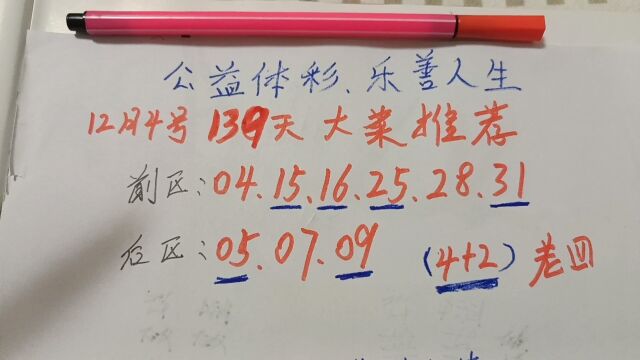 公益体彩、乐善人生
12月4号 139天 大菜推荐
前区：04.15.16.25.28.31
后区：05.07.09 (4+2) 老回